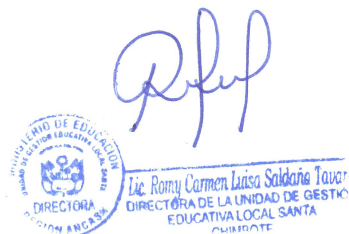 MINISTERIO DE EDUCACIÓN
UNIDAD DE GESTIÓN EDUCATIVA LOCAL SANTA
DIRECTORA
REGIÓN ANCASH
Lic. Romy Carmen Luisa Saldaña Tavar
DIRECTORA DE LA UNIDAD DE GESTIO
EDUCATIVA LOCAL SANTA
CHIMBOTE